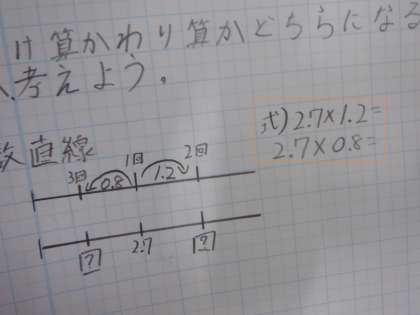 け算かわり算かどちらになる
考えよう。
数直線
式) 2.7×1.2=
2.7×0.8=
3回 1回 2回
0.8 1.2
? 2.7 ?